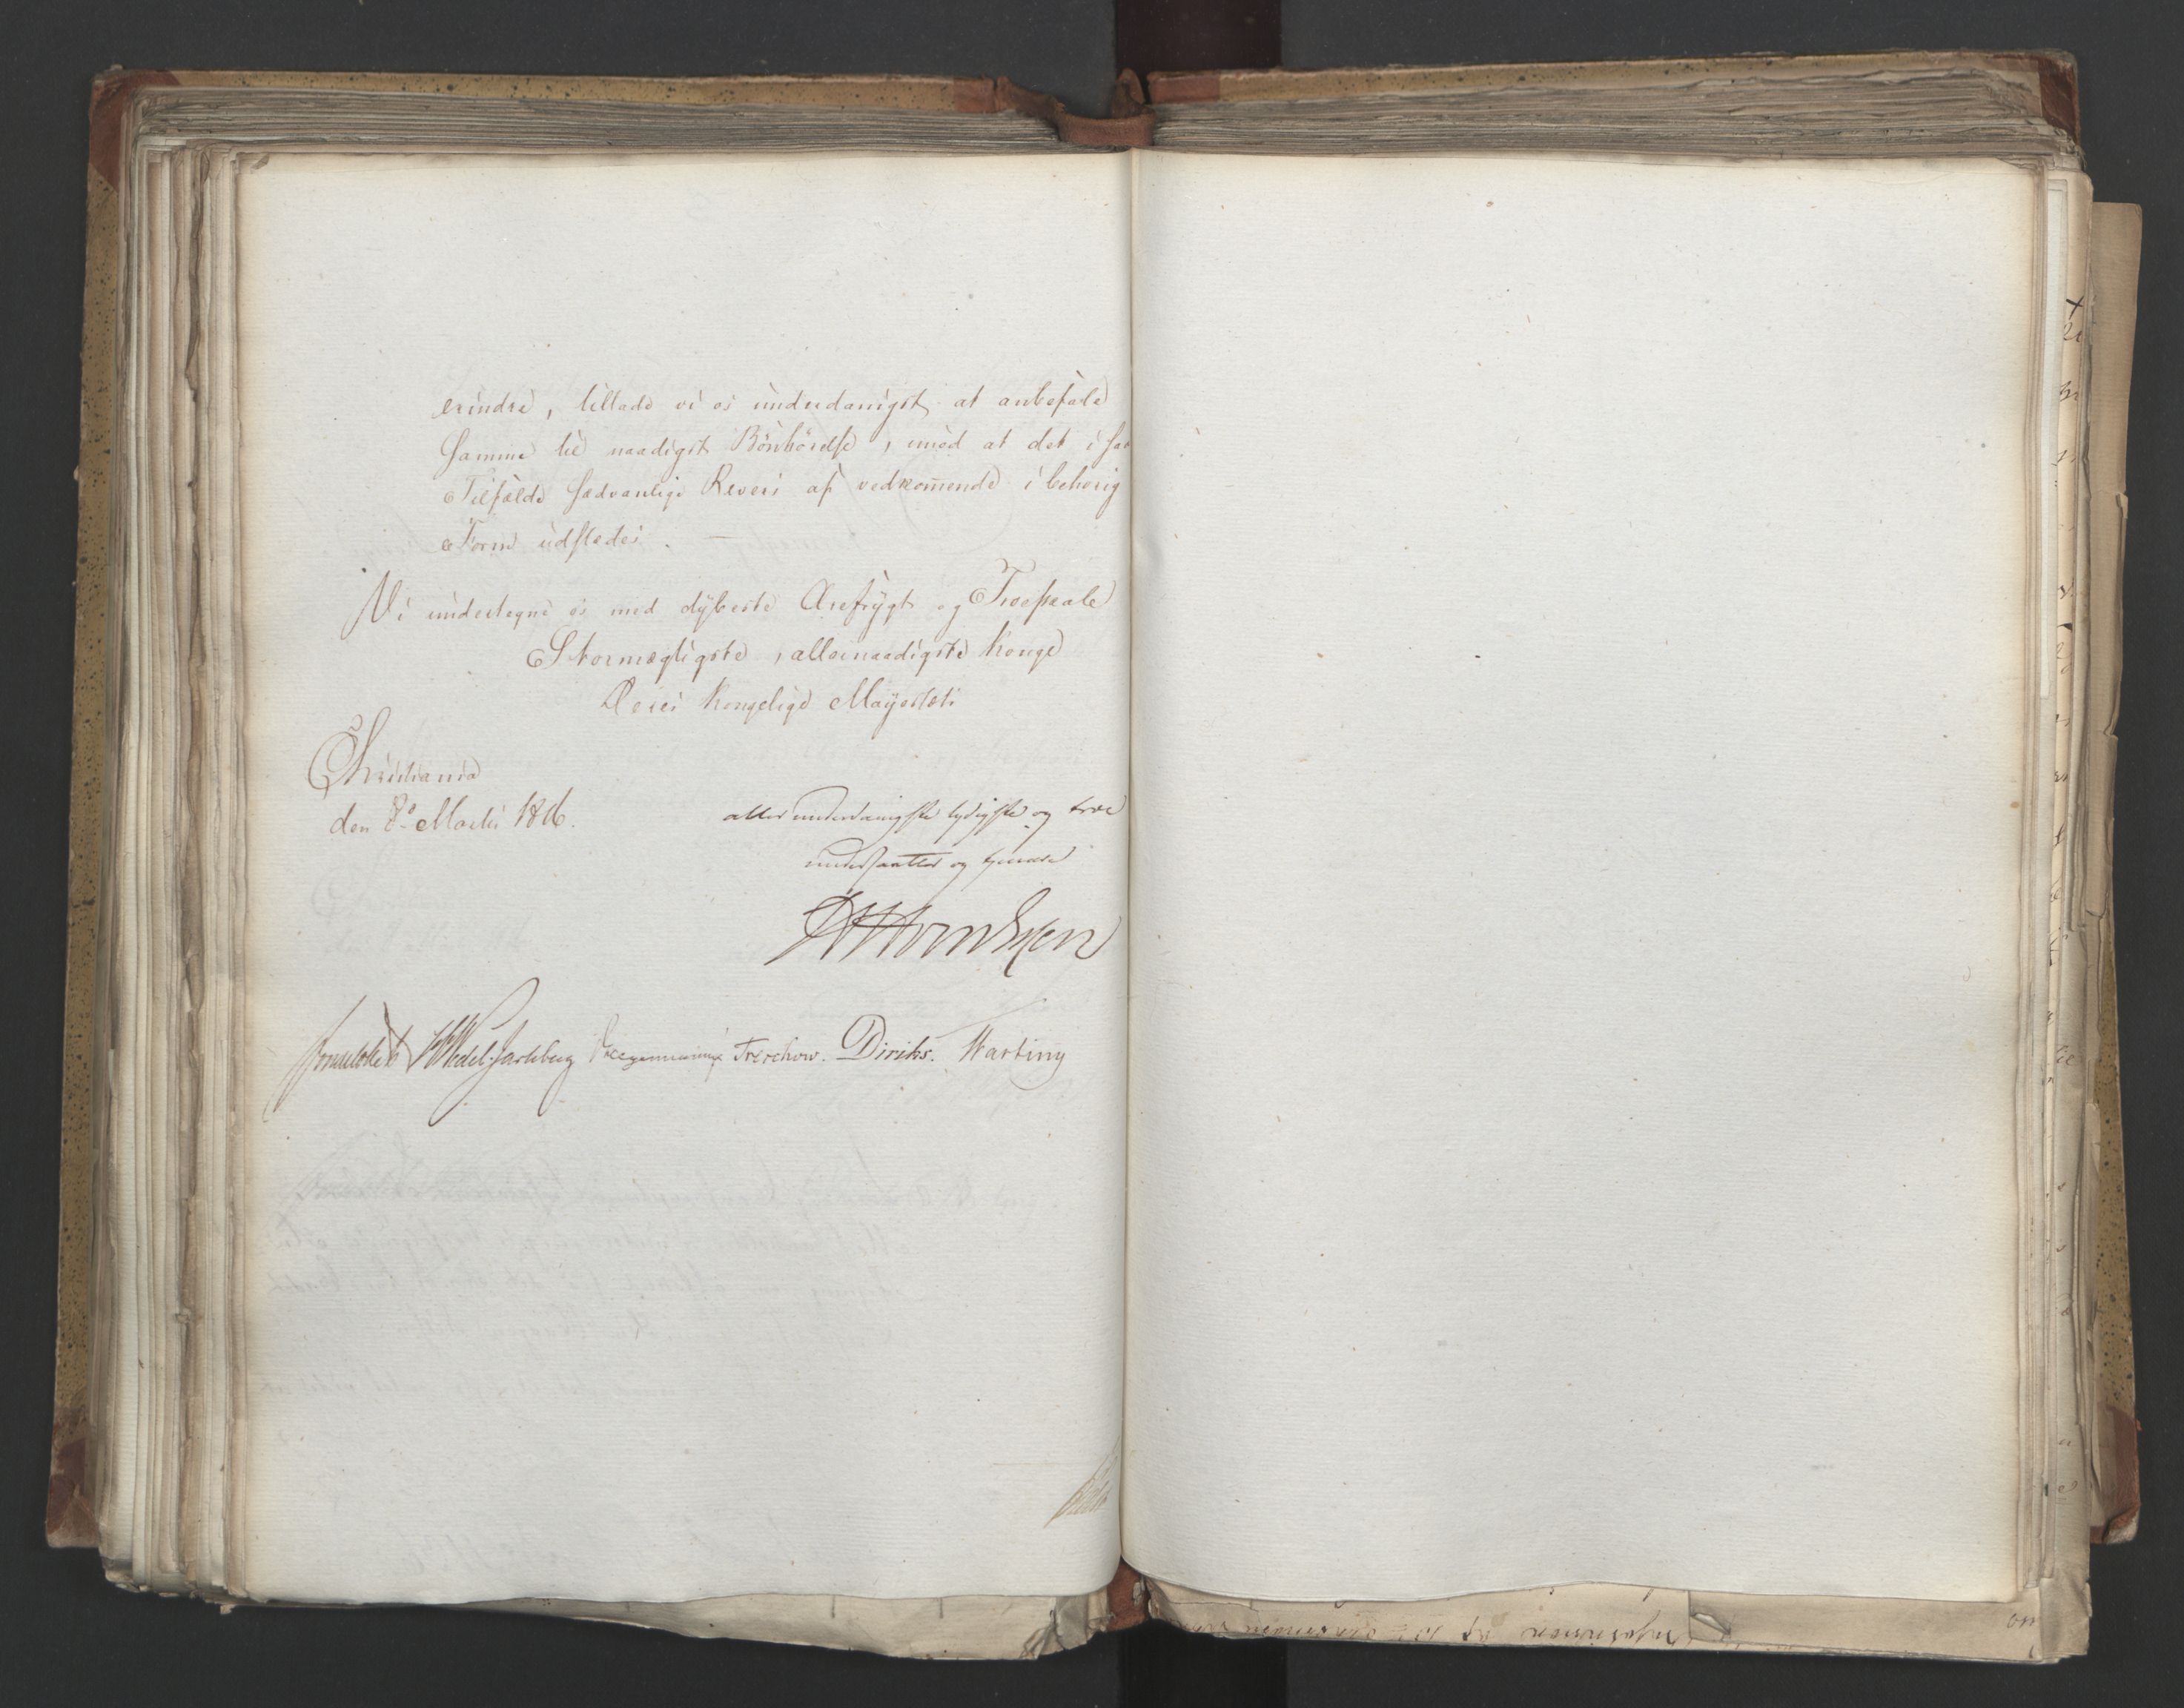 erindre, tillade vi os underdanigst at anbefale
samme til naadigst Bönhörelse, imod at det i saa
Tilfælde sædvanlige Revers af vedkom̄ende i behörig
Form udstedes. —
Vi undertegne os med dÿbeste Ærefrÿgt og Troeskab
Stormægtigste, allernaadigste Konge
Deres Kongelige Mayestæts
Christiania
den 8de Martii 1816.
allerunderdanigste lydigste og troe
undersaatter og tjenere
Sommerhielm HWedel-Jarlsberg Treschow. Diriks. Harting